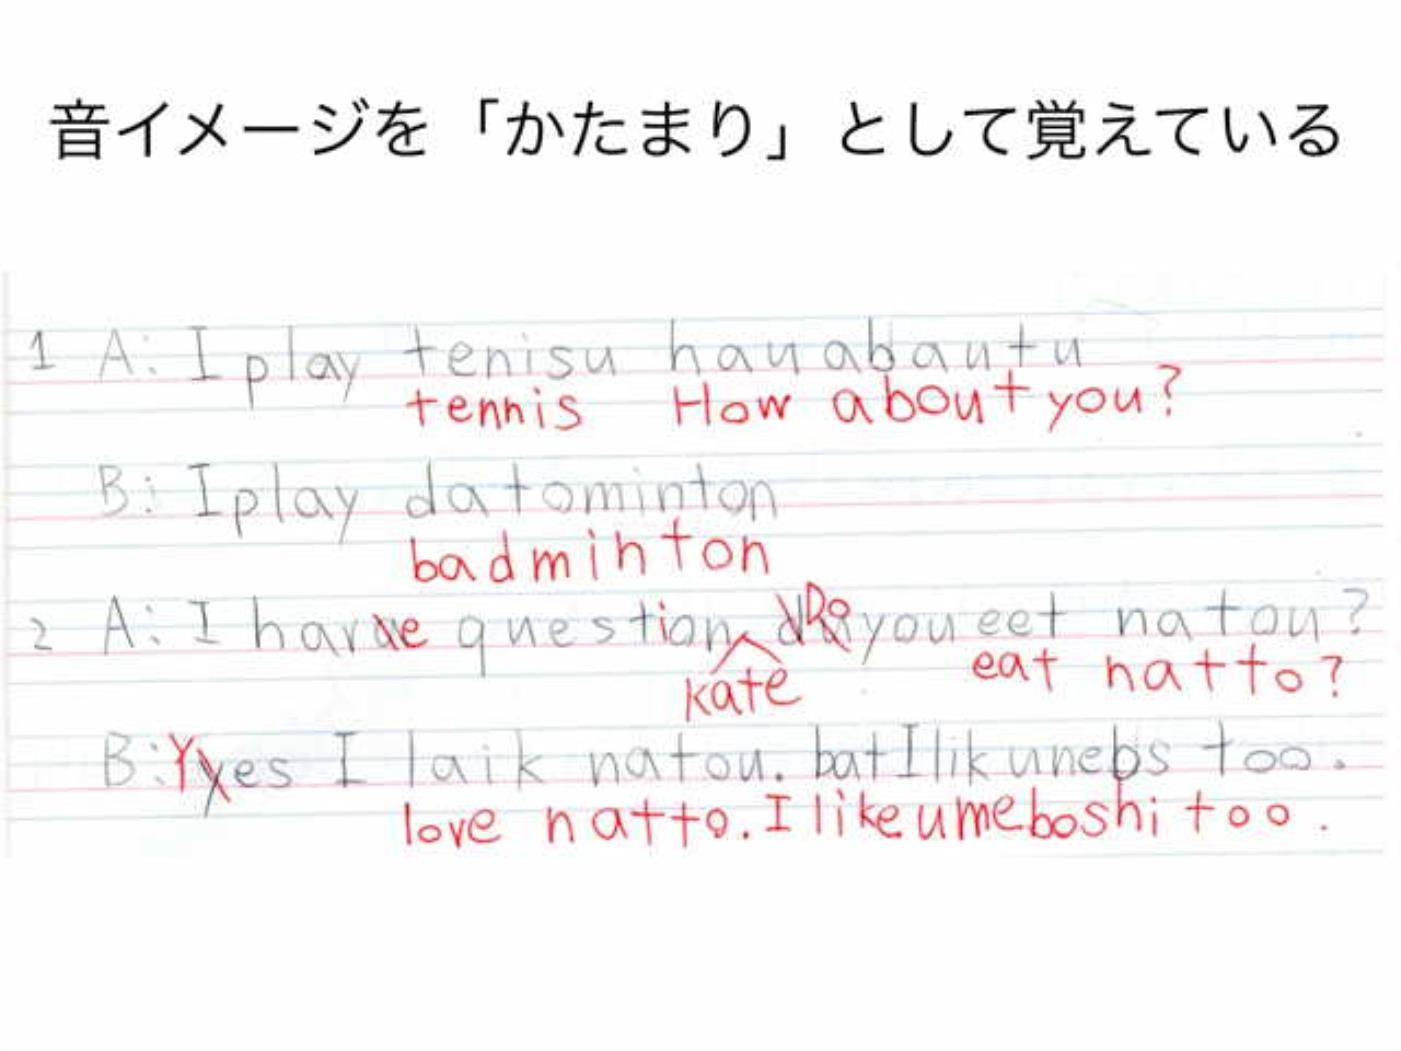 音イメージを「かたまり」として覚えている
1 A: I play tenisu hauabautu
tennis How about you?
B: I play datominton
badminton
2 A: I have question Do you eet natou?
kate eat natto?
B: Yes I laik natou. bat I lik unebs too.
love natto. I like umeboshi too.